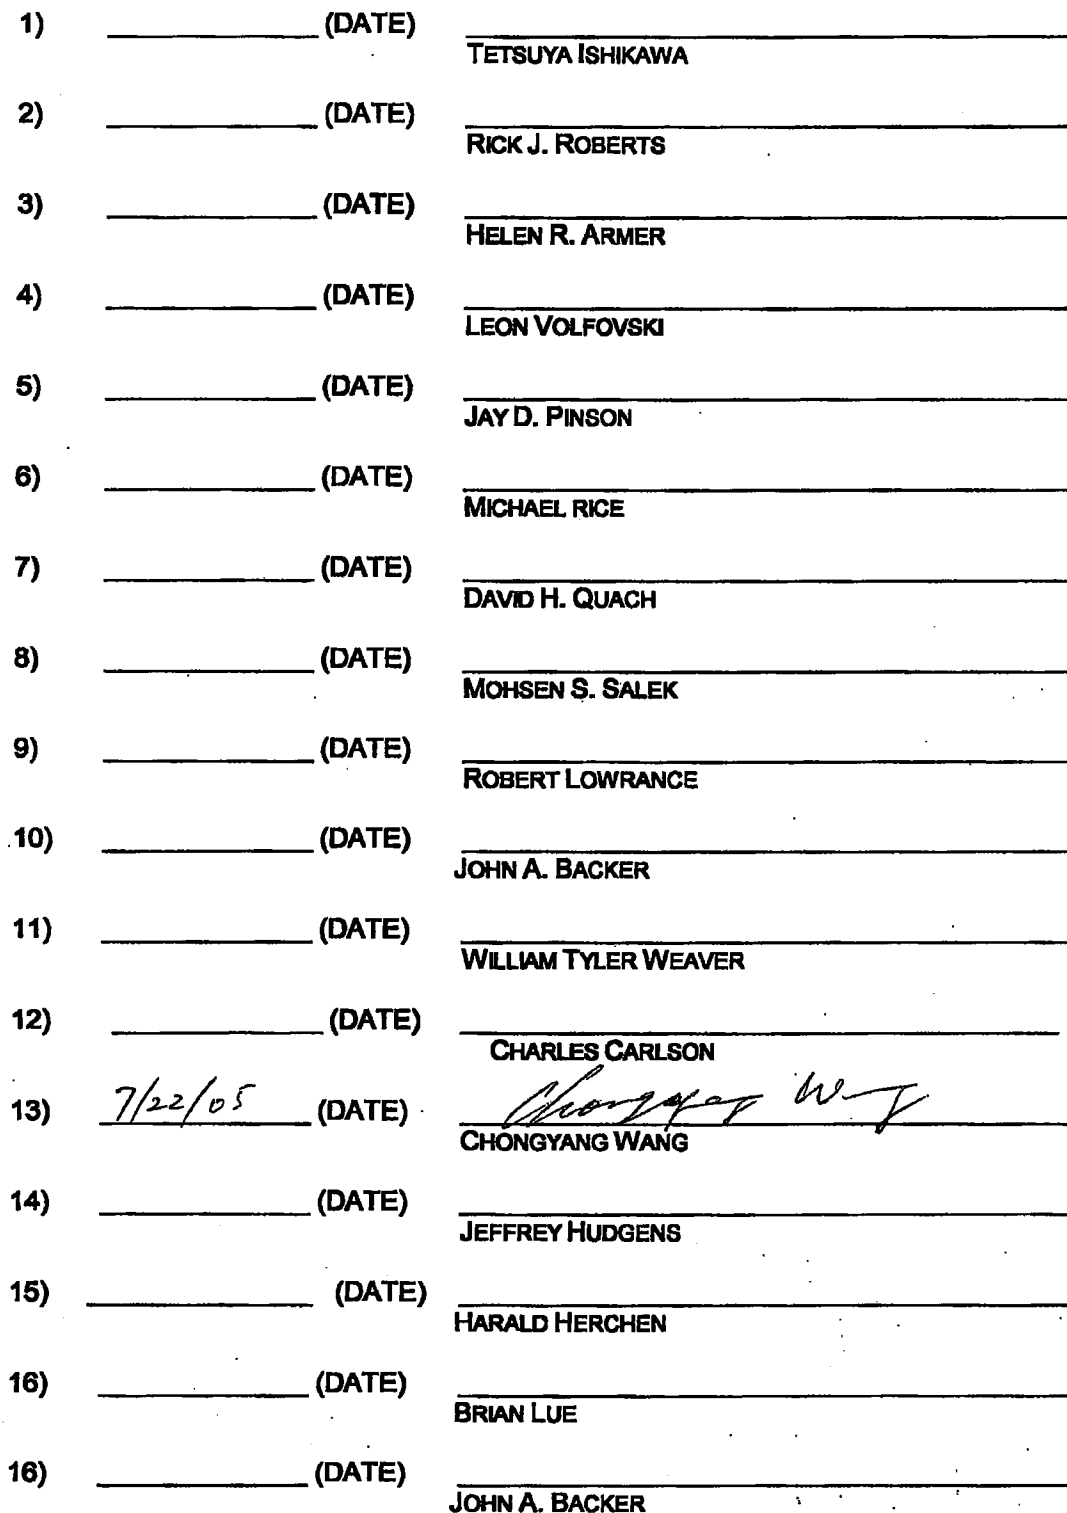 1) (DATE)
TETSUYA ISHIKAWA
2) (DATE)
RICK J. ROBERTS
3) (DATE)
HELEN R. ARMER
4) (DATE)
LEON VOLFOVSKI
5) (DATE)
JAY D. PINSON
6) (DATE)
MICHAEL RICE
7) (DATE)
DAVID H. QUACH
8) (DATE)
MOHSEN S. SALEK
9) (DATE)
ROBERT LOWRANCE
10) (DATE)
JOHN A. BACKER
11) (DATE)
WILLIAM TYLER WEAVER
12) (DATE)
CHARLES CARLSON
13) 7/22/05 (DATE) Chongyang Wang
CHONGYANG WANG
14) (DATE)
JEFFREY HUDGENS
15) (DATE)
HARALD HERCHEN
16) (DATE)
BRIAN LUE
16) (DATE)
JOHN A. BACKER